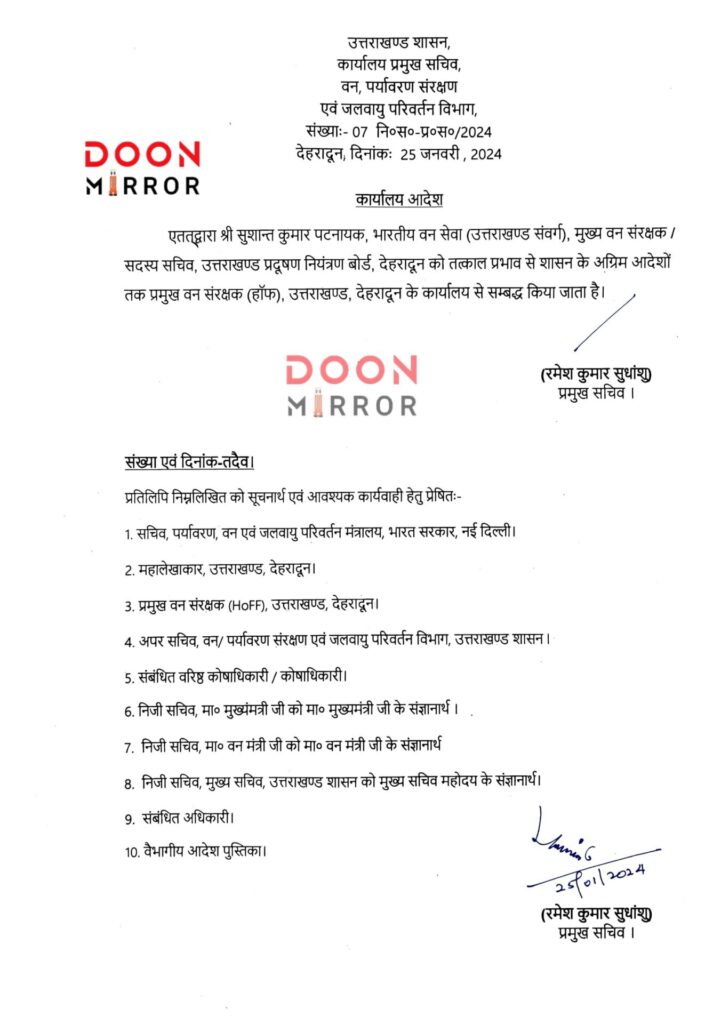 उत्तराखण्ड शासन,
कार्यालय प्रमुख सचिव,
वन, पर्यावरण संरक्षण
एवं जलवायु परिवर्तन विभाग,
संख्याः- 07 नि०स०-प्र०स०/2024
देहरादून, दिनांकः 25 जनवरी , 2024
DOON
MIRROR
कार्यालय आदेश
एतत्द्वारा श्री सुशान्त कुमार पटनायक, भारतीय वन सेवा (उत्तराखण्ड संवर्ग), मुख्य वन संरक्षक /
सदस्य सचिव, उत्तराखण्ड प्रदूषण नियंत्रण बोर्ड, देहरादून को तत्काल प्रभाव से शासन के अग्रिम आदेशों
तक प्रमुख वन संरक्षक (हॉफ), उत्तराखण्ड, देहरादून के कार्यालय से सम्बद्ध किया जाता है।
DOON
MIRROR
(रमेश कुमार सुधांशु)
प्रमुख सचिव ।
संख्या एवं दिनांक-तदैव।
प्रतिलिपि निम्नलिखित को सूचनार्थ एवं आवश्यक कार्यवाही हेतु प्रेषितः-
1. सचिव, पर्यावरण, वन एवं जलवायु परिवर्तन मंत्रालय, भारत सरकार, नई दिल्ली।
2. महालेखाकार, उत्तराखण्ड, देहरादून।
3. प्रमुख वन संरक्षक (HoFF), उत्तराखण्ड, देहरादून।
4. अपर सचिव, वन/ पर्यावरण संरक्षण एवं जलवायु परिवर्तन विभाग, उत्तराखण्ड शासन ।
5. संबंधित वरिष्ठ कोषाधिकारी / कोषाधिकारी।
6. निजी सचिव, मा० मुख्यंमत्री जी को मा० मुख्यमंत्री जी के संज्ञानार्थ ।
7. निजी सचिव, मा० वन मंत्री जी को मा० वन मंत्री जी के संज्ञानार्थ
8. निजी सचिव, मुख्य सचिव, उत्तराखण्ड शासन को मुख्य सचिव महोदय के संज्ञानार्थ।
9. संबंधित अधिकारी।
10. वैभागीय आदेश पुस्तिका।
25/01/2024
(रमेश कुमार सुधांशु)
प्रमुख सचिव ।